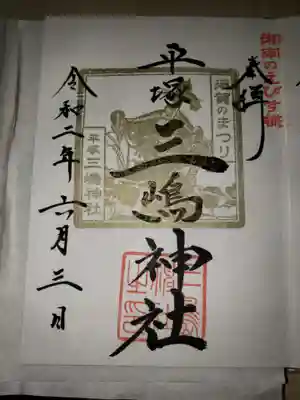 御宿のえびす様
奉拝
平塚
三嶋
神社
須賀のまつり
平塚三嶋神社
令和二年六月三日